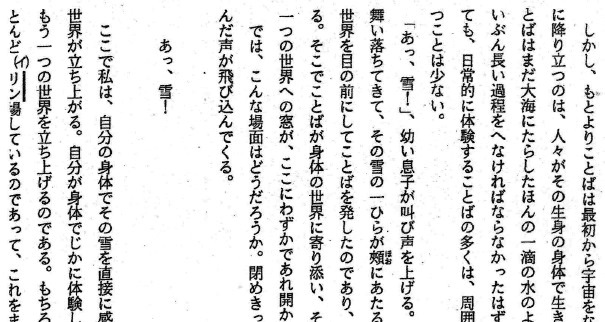 しかし、もとよりことばは最初から宇宙をな
に降り立つのは、人々がその生身の身体で生き
とばはまだ大海にたらしたほんの一滴の水のよ
いぶん長い過程をへなければならなかったはず
ても、日常的に体験することばの多くは、周囲
つことは少ない。
「あっ、雪！」、幼い息子が叫び声を上げる。
舞い落ちてきて、その雪の一ひらが頰にあたる
世界を目の前にしてことばを発したのであり、
る。そこでことばが身体の世界に寄り添い、そ
一つの世界への窓が、ここにわずかであれ開か
では、こんな場面はどうだろうか。閉めきっ
んだ声が飛び込んでくる。
あっ、雪！
ここで私は、自分の身体でその雪を直接に感
世界が立ち上がる。自分が身体でじかに体験し
もう一つの世界を立ち上げるのである。もちろ
とんど(イ)リン場しているのであって、これをま